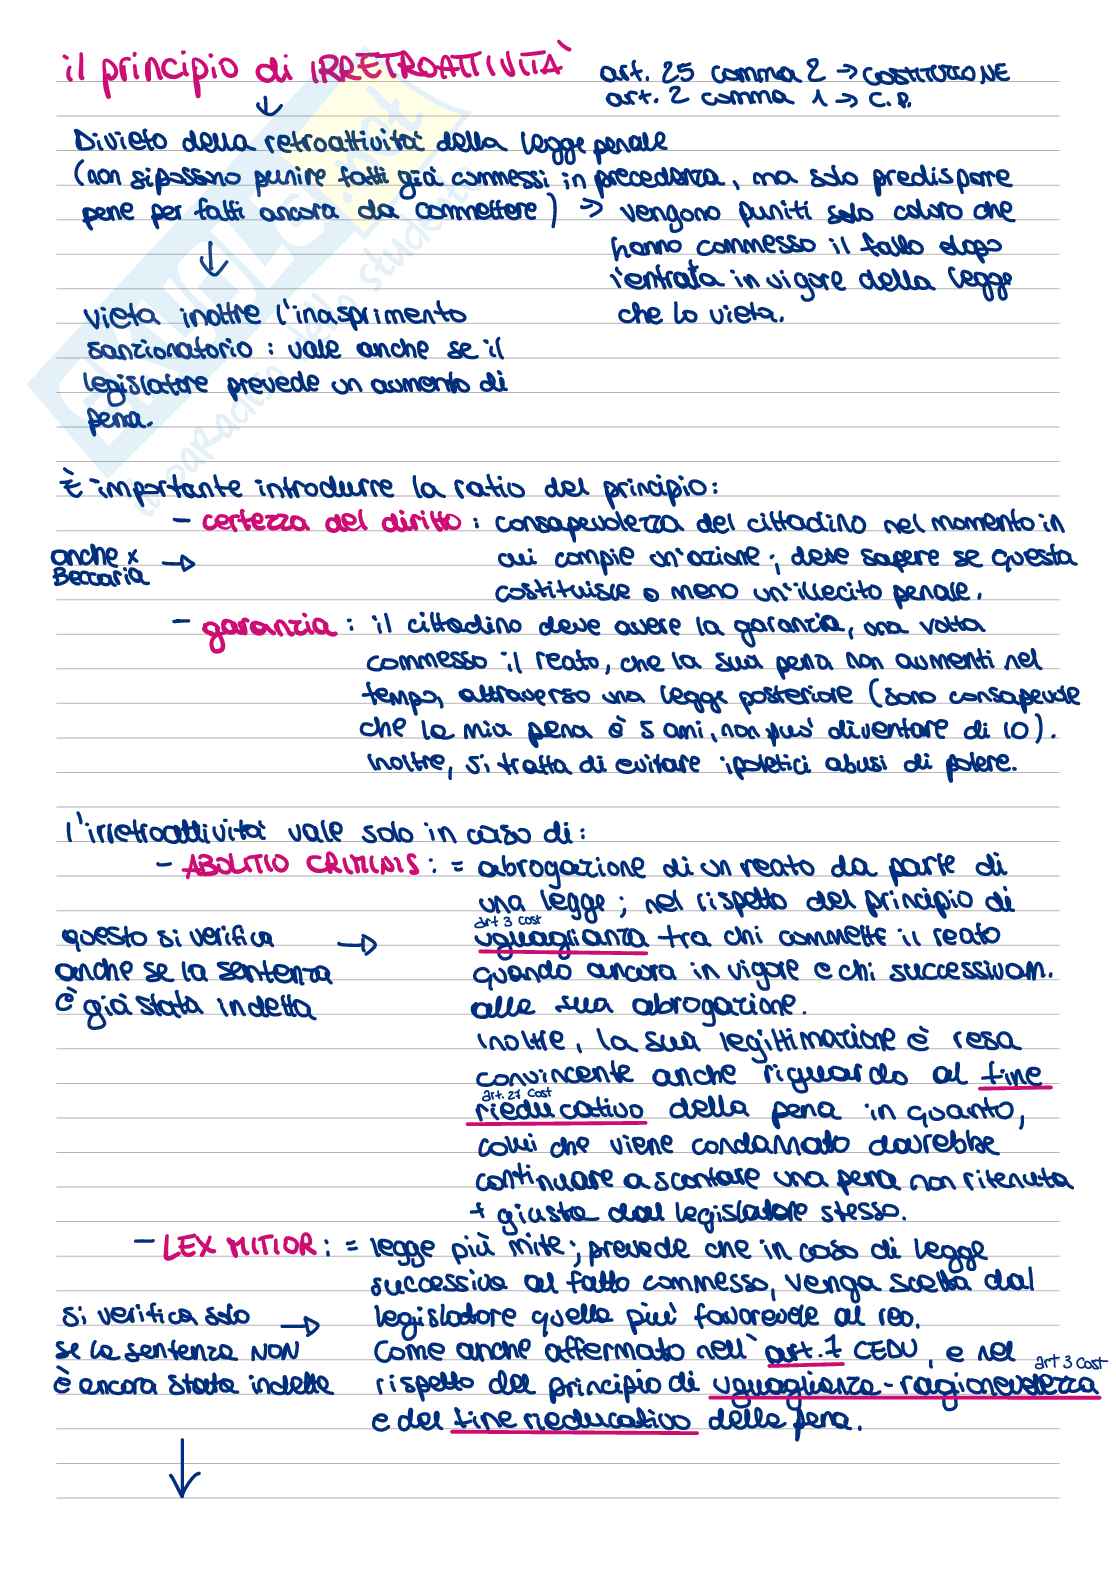 il principio di IRRETROATTIVITÀ
art. 25 comma 2 → COSTITUZIONE
art. 2 comma 1 → C.P.
Divieto della retroattività della legge penale
(non si possono punire fatti già commessi in precedenza, ma solo predisporre
pene per fatti ancora da commettere) → vengono puniti solo coloro che
hanno commesso il fatto dopo
l'entrata in vigore della legge
che lo vieta.
vieta inoltre l'inasprimento
sanzionatorio : vale anche se il
legislatore prevede un aumento di
pena.
È importante introdurre la ratio del principio:
- certezza del diritto : consapevolezza del cittadino nel momento in
anche x
Beccaria →
cui compie un'azione ; deve sapere se questa
costituisce o meno un'illecito penale.
- garanzia : il cittadino deve avere la garanzia, una volta
commesso il reato, che la sua pena non aumenti nel
tempo, attraverso una legge posteriore (sono consapevole
che la mia pena è 5 anni, non può diventare di 10).
Inoltre, si tratta di evitare ipotetici abusi di potere.
l'irretroattività vale solo in caso di:
- ABOLITIO CRIMINIS : = abrogazione di un reato da parte di
una legge ; nel rispetto del principio di
art 3 cost
uguaglianza tra chi commette il reato
quando ancora in vigore e chi successivam.
alla sua abrogazione.
questo si verifica →
anche se la sentenza
c'è già stata indetta
Inoltre, la sua legittimazione è resa
convincente anche riguardo al fine
art. 27 cost
rieducativo della pena in quanto,
colui che viene condannato dovrebbe
continuare a scontare una pena non ritenuta
+ giusta dal legislatore stesso.
- LEX MITIOR : = legge più mite ; prevede che in caso di legge
successiva al fatto commesso, venga scelta dal
legislatore quella più favorevole al reo.
si verifica solo →
se la sentenza NON
è ancora stata indetta
Come anche affermato nell' art. 7 CEDU, e nel
art 3 cost
rispetto del principio di uguaglianza-ragionevolezza
e del fine rieducativo della pena.